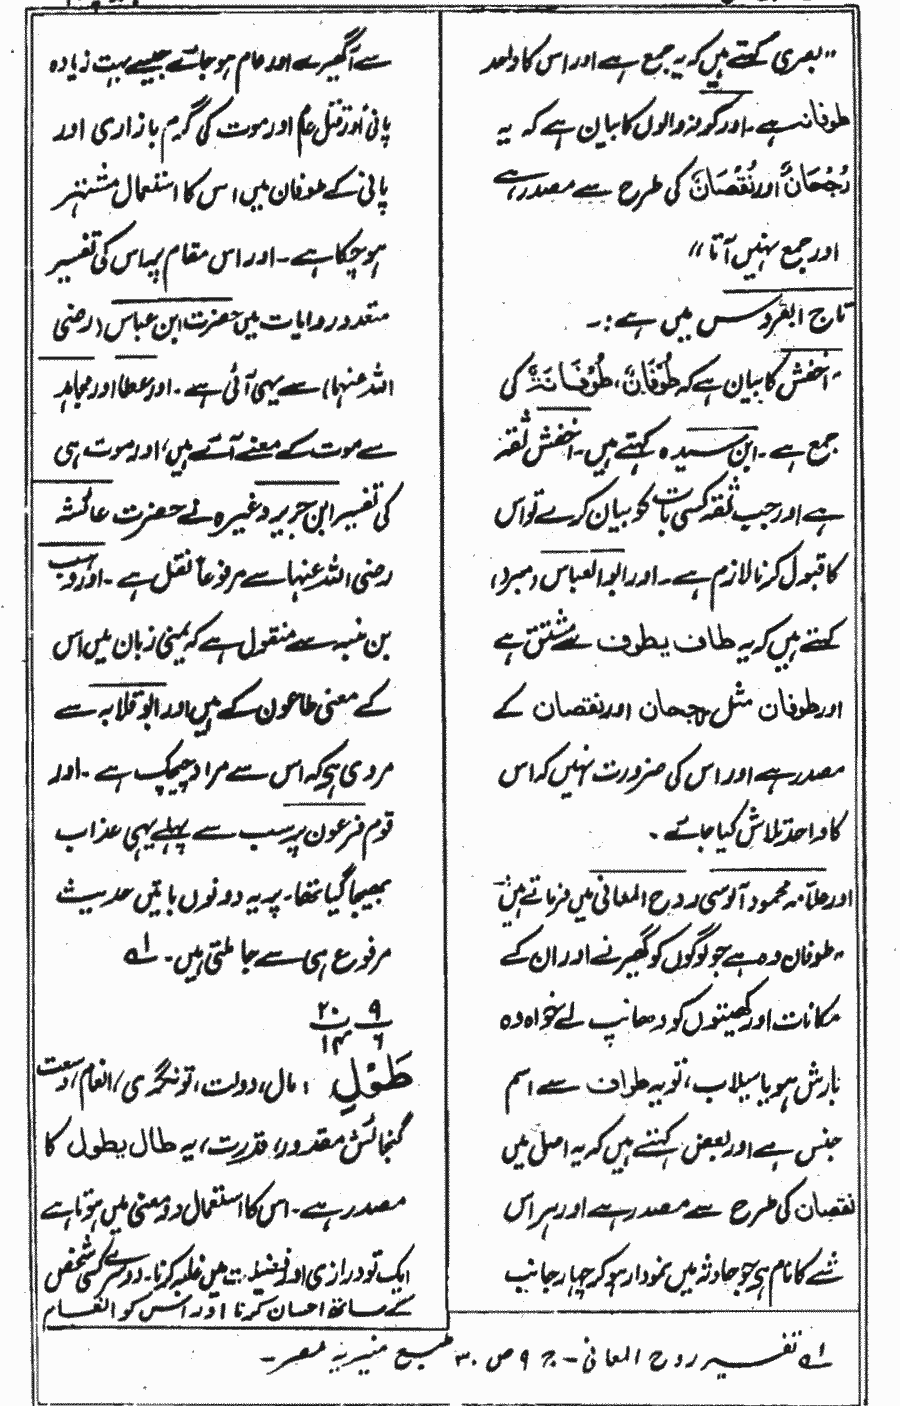 "بصری کہتے ہیں کہ یہ جمع ہے اور اس کا واحد
طوفانۃ ہے۔ اور کوفہ والوں کا بیان ہے کہ یہ
رُجْحَانٌ اور نُقْصَانٌ کی طرح سے مصدر ہے
اور جمع نہیں آتا"
تاج الفردوس میں ہے:۔
"اخفش کا بیان ہے کہ طُوْفَانٌ، طُوْفَانَۃٌ کی
جمع ہے۔ ابن سیدہ کہتے ہیں۔ اخفش ثقہ
ہے اور جب ثقہ کسی بات کو بیان کرے تو اس
کا قبول کرنا لازم ہے۔ اور ابو العباس (مبرد)
کہتے ہیں کہ یہ طاف یطوف سے مشتق ہے
اور طوفان مثل رجحان اور نقصان کے
مصدر ہے اور اس کی ضرورت نہیں کہ اس
کا واحد تلاش کیا جائے۔
اور علامہ محمود آلوسی روح المعانی میں فرماتے ہیں
"طوفان وہ ہے جو لوگوں کو گھیرنے اور ان کے
مکانات اور کھیتوں کو ڈھانپ لے خواہ وہ
بارش ہو یا سیلاب، تو یہ طواف سے اسم
جنس ہے اور بعض کہتے ہیں کہ یہ اصل میں
نقصان کی طرح سے مصدر ہے اور ہر اس
شے کا نام ہے جو حادثہ میں نمودار ہو کر چہار جانب
سے آگھیرے اور عام ہو جائے جیسے بہت زیادہ
پانی اور قتل عام اور موت کی گرم بازاری اور
پانی کے طوفان میں اس کا استعمال مشتہر
ہو چکا ہے۔ اور اس مقام پر اس کی تفسیر
متعدد روایات میں حضرت ابن عباس (رضی
اللہ عنہما) سے یہی آئی ہے۔ اور عطا اور مجاہد
سے موت کے معنے آتے ہیں، اور موت ہی
کی تفسیر ابن جریر وغیرہ نے حضرت عائشہ
رضی اللہ عنہا سے مرفوعاً نقل ہے۔ اور وہب
بن منبہ سے منقول ہے کہ یمنی زبان میں اس
کے معنی طاعون کے ہیں اور ابو قلابہ سے
مروی ہے کہ اس سے مراد چیچک ہے۔ اور
قوم فرعون پر سب سے پہلے یہی عذاب
بھیجا گیا تھا۔ پر یہ دونوں باتیں حدیث
مرفوع ہی سے جا ملتی ہیں۔ ۱ھ
۹ ۲۰
۶ ۱۴
طَوْلٍ: مال، دولت، تونگری، انعام، وسعت
گنجائش مقدور، قدرت، یہ طال یطول کا
مصدر ہے۔ اس کا استعمال دو معنی میں ہوتا ہے
ایک تو درازی اور فضیلت میں غلبہ کرنا۔ دوسرے کسی شخص
کے ساتھ احسان کرنا اور اس کو انعام
۱ھ تفسیر روح المعانی۔ ج ۹ ص ۳۰ طبع منیریہ مصر۔